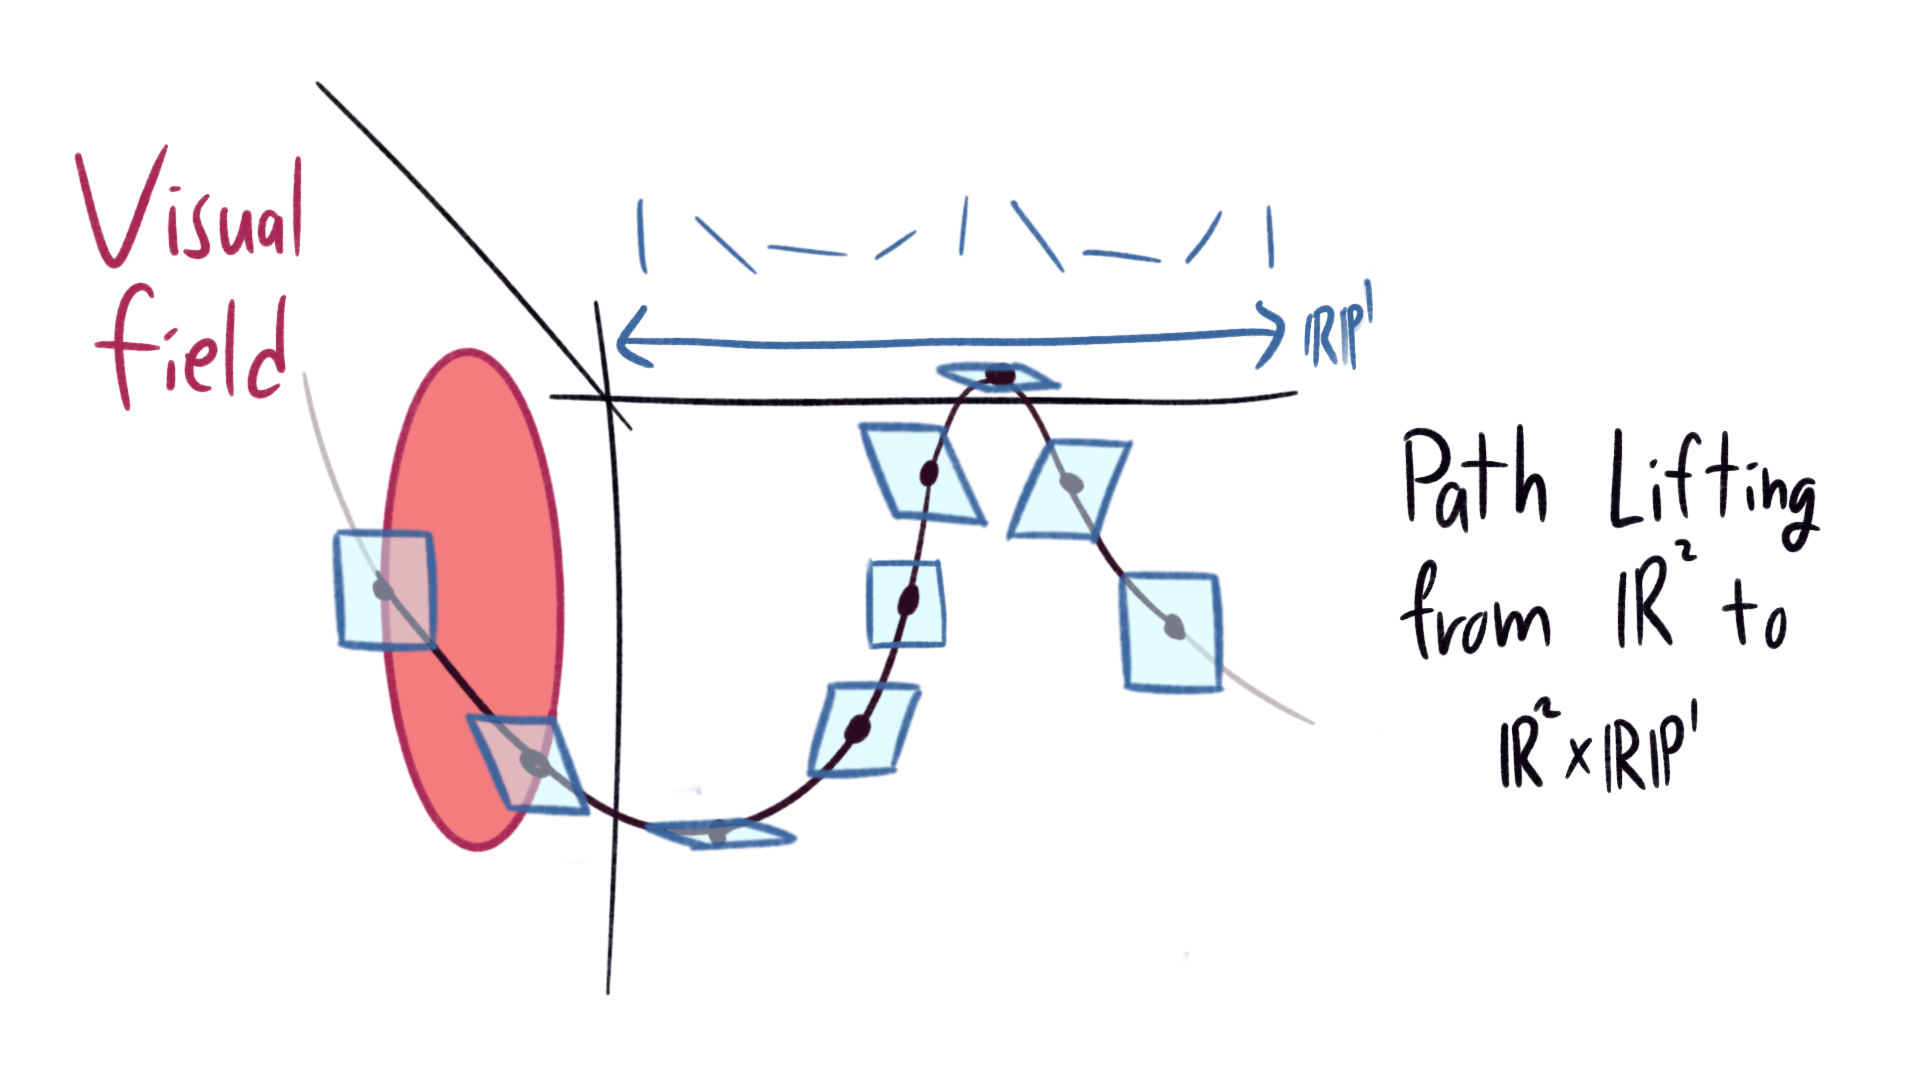 Visual
field
ℝℙ¹
Path Lifting
from ℝ² to
ℝ²×ℝℙ¹